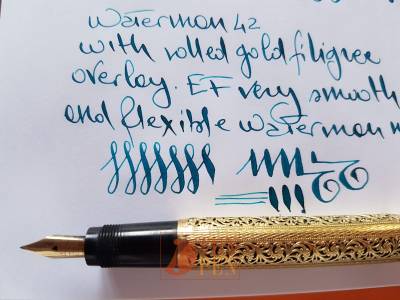 Waterman 42
with rolled gold filigree
overlay. EF very smooth
and flexible Waterman
PEN